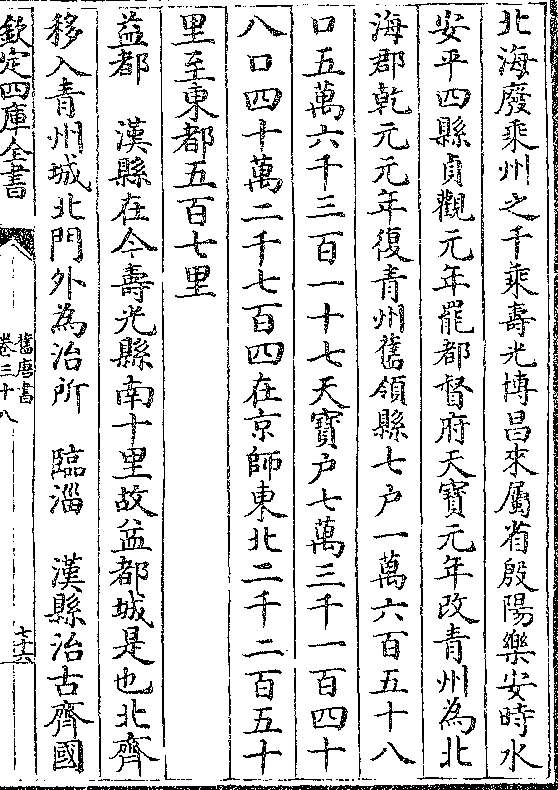 北海廢乘州之千乘壽光博昌來屬省殷陽樂安時水
安平四縣貞觀元年罷都督府天寶元年改青州為北
海郡乾元元年復青州舊領縣七户一萬六百五十八
口五萬六千三百一十七天寶户七萬三千一百四十
八口四十萬二千七百四在京師東北二千二百五十
里至東都五百七里
益都　漢縣在今壽光縣南十里故益都城是也北齊
移入青州城北門外為治所　臨淄　漢縣治古齊國
欽定四庫全書
舊唐書
卷三十八
七十六